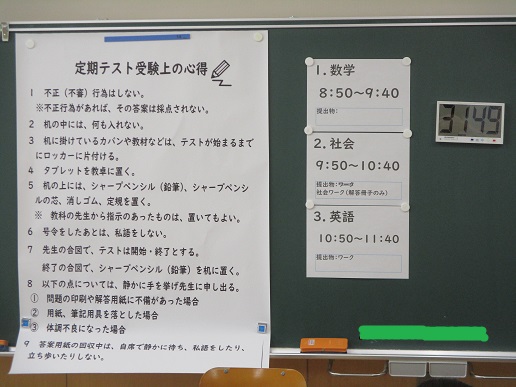 定期テスト受験上の心得
1 不正(不審)行為はしない。
※不正行為があれば、その答案は採点されない。
2 机の中には、何も入れない。
3 机に掛けているカバンや教材などは、テストが始まるまで
にロッカーに片付ける。
4 タブレットを教卓に置く。
5 机の上には、シャープペンシル(鉛筆)、シャープペンシ
ルの芯、消しゴム、定規を置く。
※ 教科の先生から指示のあったものは、置いてもよい。
6 号令をしたあとは、私語をしない。
7 先生の合図で、テストは開始・終了とする。
終了の合図で、シャープペンシル(鉛筆)を机に置く。
8 以下の点については、静かに手を挙げ先生に申し出る。
① 問題の印刷や解答用紙に不備があった場合
② 用紙、筆記用具を落とした場合
③ 体調不良になった場合
9 答案用紙の回収中は、自席で静かに待ち、私語をしたり、
立ち歩いたりしない。
1.数学
8:50~9:40
提出物:
2.社会
9:50~10:40
提出物:ワーク
社会ワーク(解答冊子のみ)
3.英語
10:50~11:40
提出物:ワーク
31:49